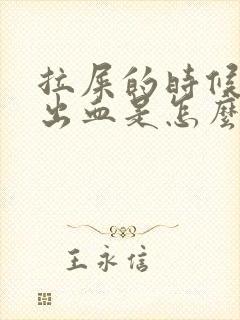 拉屎的時候
出血是怎麼
王永信